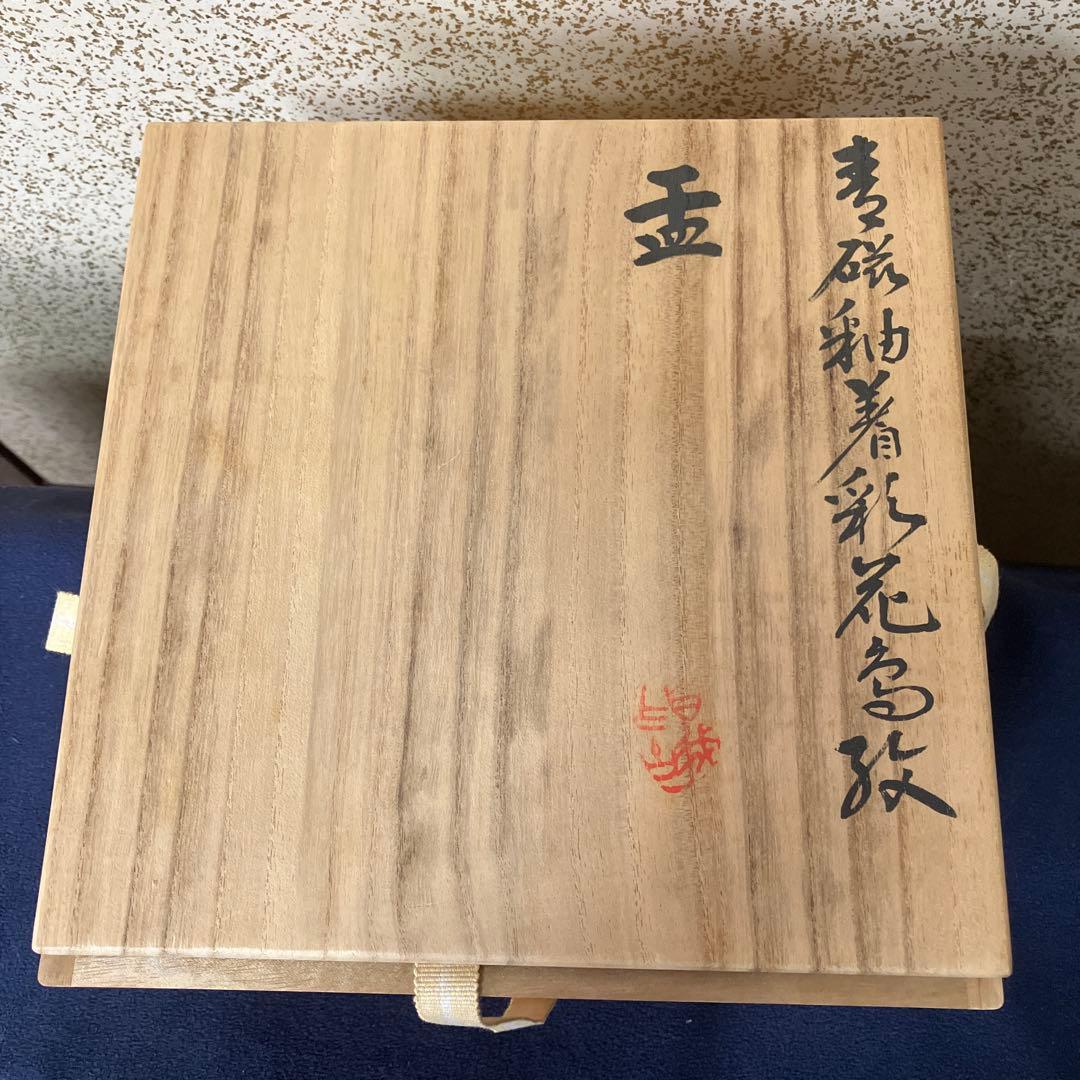 青磁釉着彩花鳥紋
盂